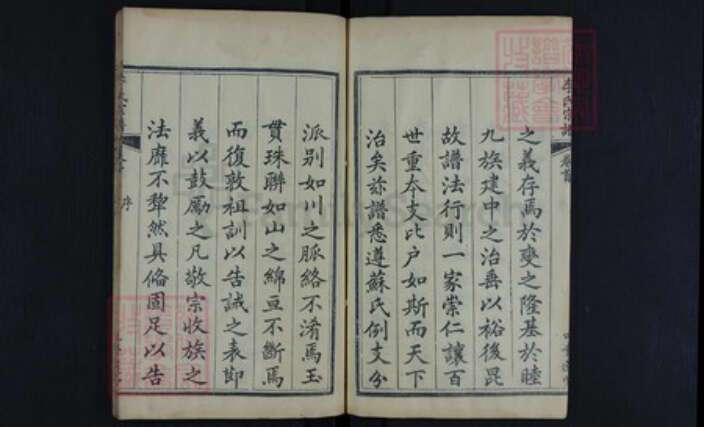 李氏宗譜
卷首
之義存焉於變之隆基於睦
九族建中之治垂以裕後昆
故譜法行則一家崇仁讓百
世重本支比户如斯而天下
治矣茲譜悉遵蘇氏例支分
派别如川之脈絡不淆焉玉
貫珠聯如山之綿亘不斷焉
而復敦祖訓以告誡之表節
義以鼓勵之凡敬宗收族之
法靡不犂然具俻固足以告
序